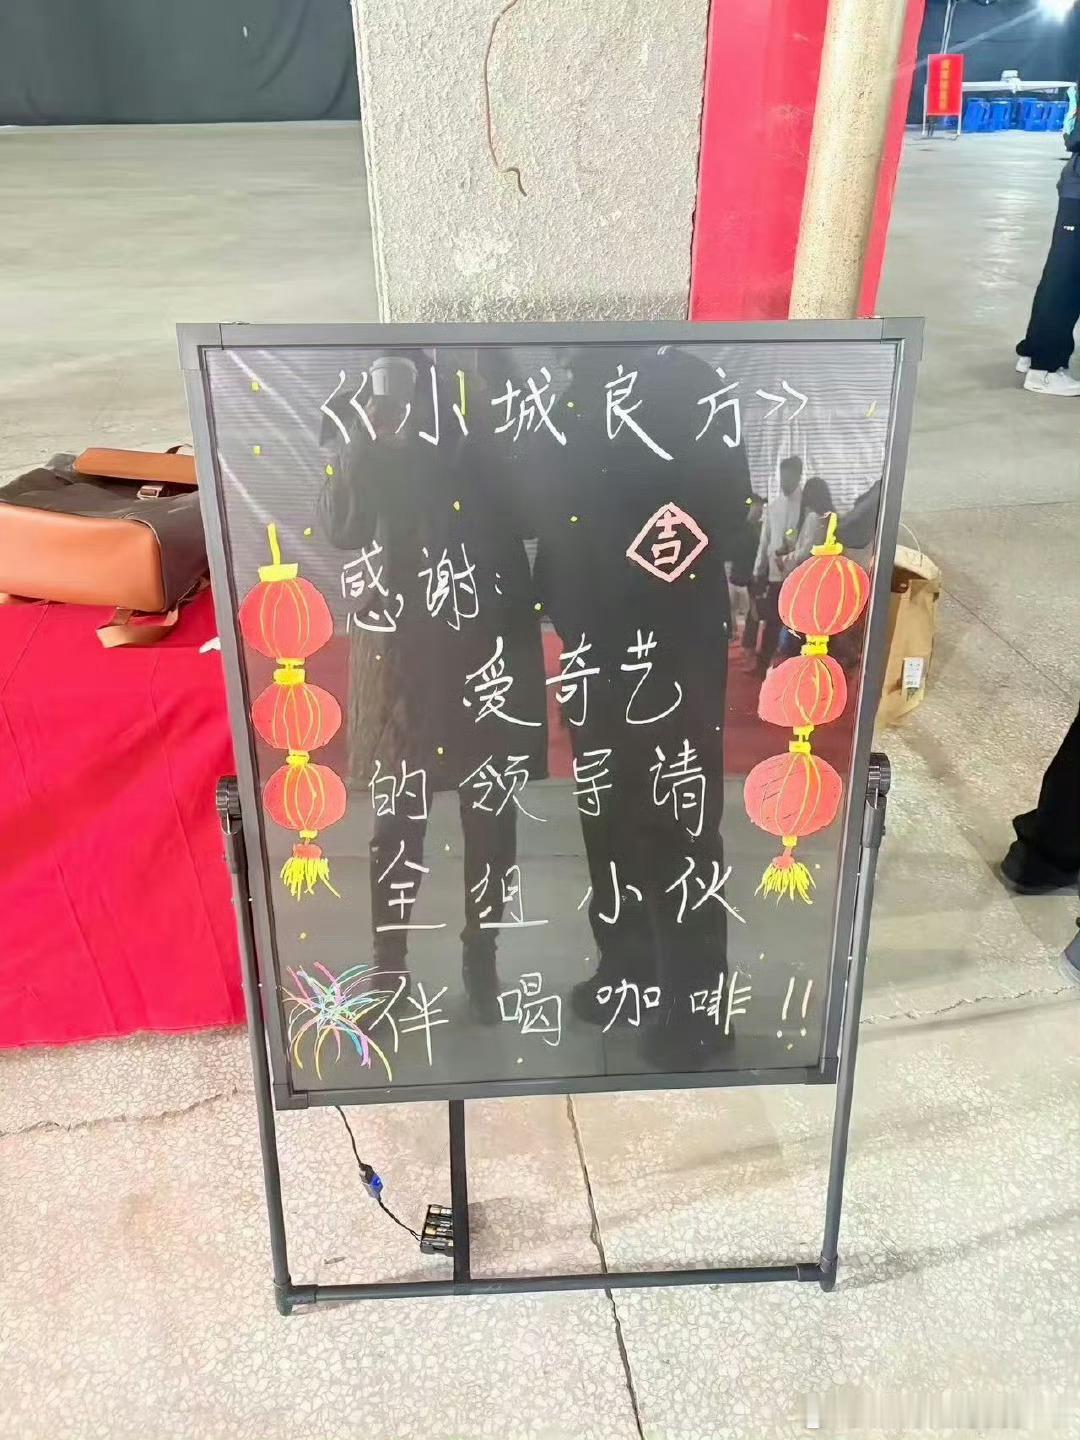 《小城良方》
吉
感谢:
爱奇艺
的领导请
全组小伙
伴喝咖啡!!